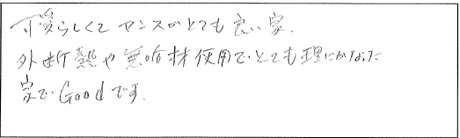 可愛らしくてセンスがとても良い家.
外断熱や無垢材使用で、とても理にかなった
家で、Goodです.